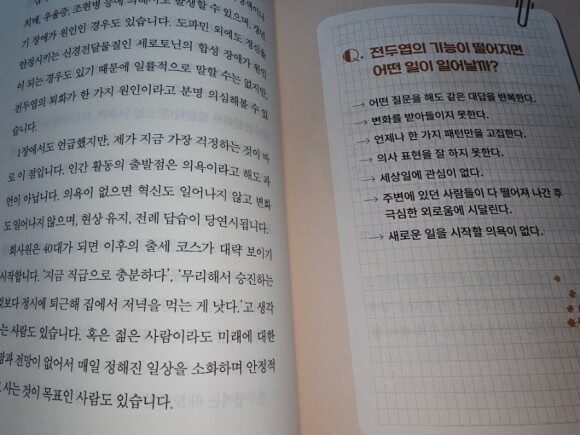 치매, 우울증, 조현병 등에 의해서도 발생할 수 있으며,
기 장애가 원인인 경우도 있습니다. 도파민 외에도 정신을
안정시키는 신경전달물질인 세로토닌의 합성 장애가 원인
이 되는 경우도 있기 때문에 일률적으로 말할 수는 없지만,
전두엽의 퇴화가 한 가지 원인이라고 분명 의심해볼 수 있
습니다.
1장에서도 언급했지만, 제가 지금 가장 걱정하는 것이 바
로 이 점입니다. 인간 활동의 출발점은 의욕이라고 해도 과
언이 아닙니다. 의욕이 없으면 혁신도 일어나지 않고 변화
도 일어나지 않으며, 현상 유지, 전례 답습이 당연시됩니다.
회사원은 40대가 되면 이후의 출세 코스가 대략 보이기
시작합니다. ‘지금 직급으로 충분하다’, ‘무리해서 승진하는
것보다 정시에 퇴근해 집에서 저녁을 먹는 게 낫다.’고 생각
는 사람도 있습니다. 혹은 젊은 사람이라도 미래에 대한
망과 전망이 없어서 매일 정해진 일상을 소화하며 안정적
사는 것이 목표인 사람도 있습니다.
Q. 전두엽의 기능이 떨어지면
어떤 일이 일어날까?
→ 어떤 질문을 해도 같은 대답을 반복한다.
→ 변화를 받아들이지 못한다.
→ 언제나 한 가지 패턴만을 고집한다.
→ 의사 표현을 잘 하지 못한다.
→ 세상일에 관심이 없다.
→ 주변에 있던 사람들이 다 떨어져 나간 후
극심한 외로움에 시달린다.
→ 새로운 일을 시작할 의욕이 없다.